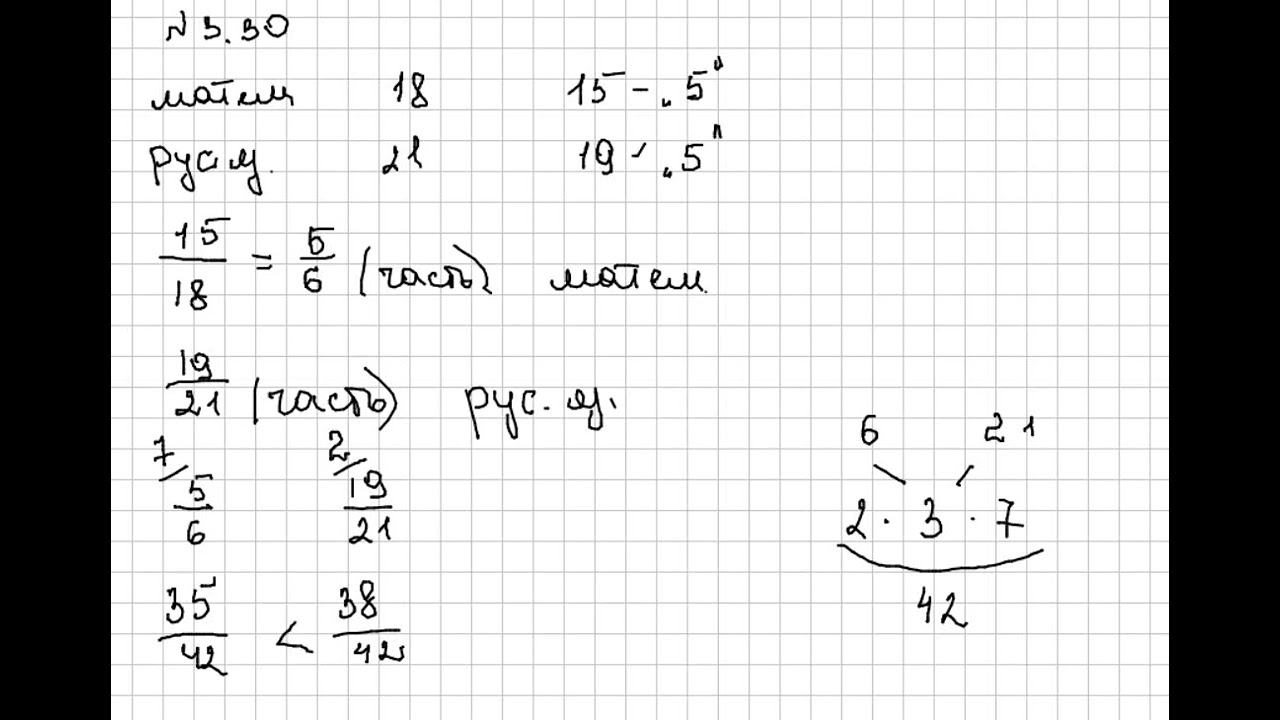 № 3.30
матем 18 15 - „5"
рус.я. 21 19 - „5"
15/18 = 5/6 (часть) матем.
19/21 (часть) рус. я.
7/ 5/6 2/ 19/21
35/42 < 38/42
6 21
2 · 3 · 7
42